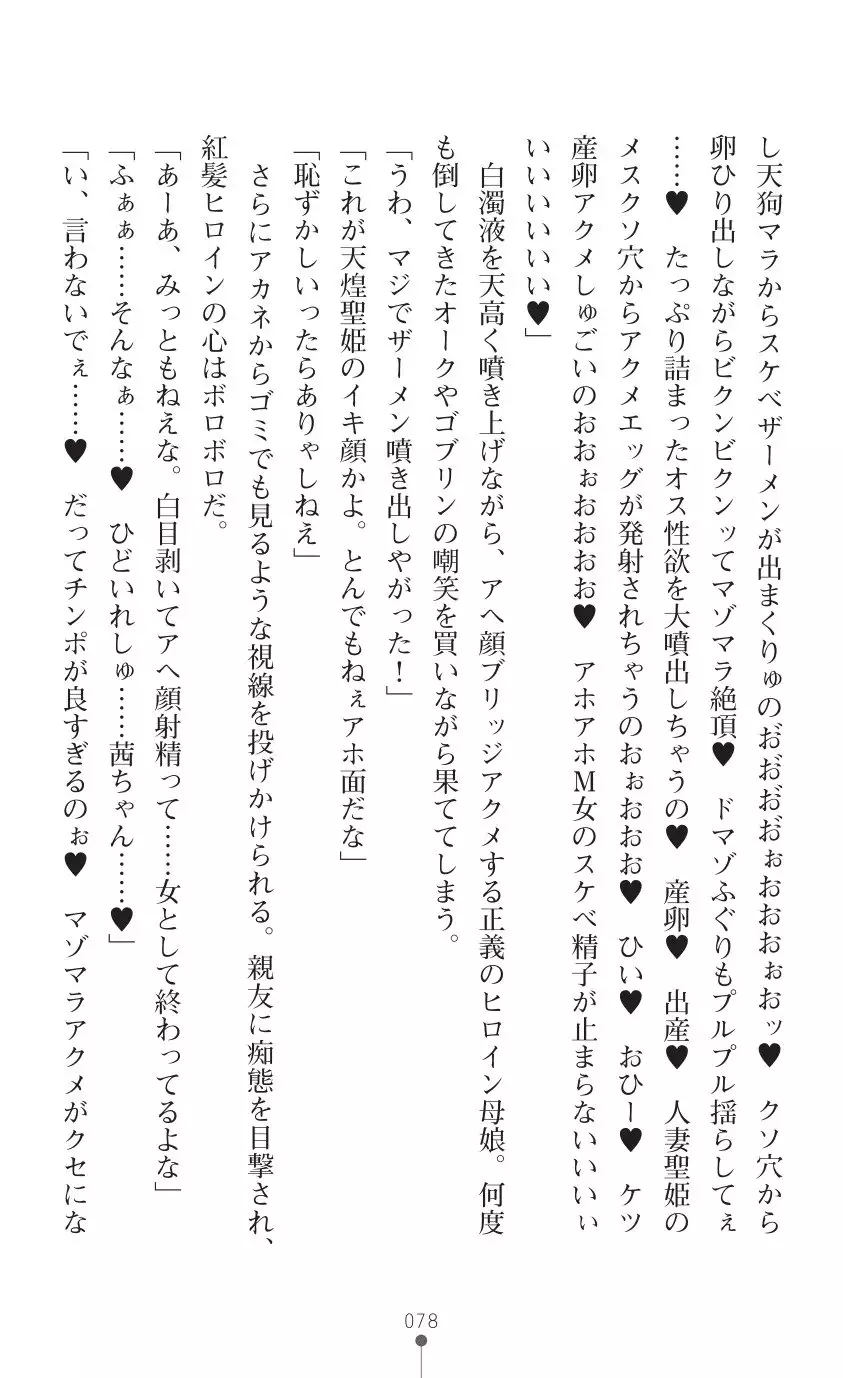 し天狗マラからスケベザーメンが出まくりゅのお゙お゙お゙お゙ぉおおおぉおッ♥　クソ穴から
卵ひり出しながらビクンビクンッてマゾマラ絶頂♥　ドマゾふぐりもプルプル揺らしてぇ
……♥　たっぷり詰まったオス性欲を大噴出しちゃうの♥　産卵♥　出産♥　人妻聖姫の
メスクソ穴からアクメエッグが発射されちゃうのおぉおおお♥　ひい♥　おひー♥　ケツ
産卵アクメしゅごいのおおぉおおおお♥　アホアホM女のスケベ精子が止まらないいいいぃ
いいいいいいい♥」
　白濁液を天高く噴き上げながら、アヘ顔ブリッジアクメする正義のヒロイン母娘。何度
も倒してきたオークやゴブリンの嘲笑を買いながら果ててしまう。
「うわ、マジでザーメン噴き出しやがった！」
「これが天煌聖姫のイキ顔かよ。とんでもねぇアホ面だな」
「恥ずかしいったらありゃしねえ」
　さらにアカネからゴミでも見るような視線を投げかけられる。親友に痴態を目撃され、
紅髪ヒロインの心はボロボロだ。
「あーあ、みっともねえな。白目剥いてアヘ顔射精って……女として終わってるよな」
「ふぁぁ……そんなぁ……♥　ひどいれしゅ……茜ちゃん……♥」
「い、言わないでぇ……♥　だってチンポが良すぎるのぉ♥　マゾマラアクメがクセにな
078